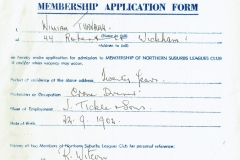 MEMBERSHIP APPLICATION FORM
I, William
(Name in full)
of 44 St Wickham
(Address in full)
do hereby make application for admission to MEMBERSHIP OF NORTHERN SUBURBS LEAGUES CLUB
if and/or when vacancy may occur.
Period of residence at the above address Twenty Years.
Profession or Occupation Crane Driver
Name of Employment J. Tickle & Sons.
Date of Birth 22.9.1902.
Names of two Members of Northern Suburbs Leagues Club for personal reference:
R. Wilson